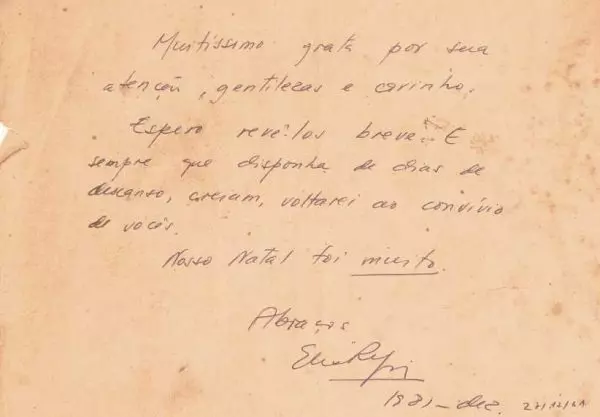 Muitíssimo grata por sua
atenção, gentilezas e carinho.
Espero revê-los breve. E
sempre que disponha de dias de
descanso, creiam, voltarei ao convívio
de vocês.
Nosso Natal foi muito.
Abraços
- dez.